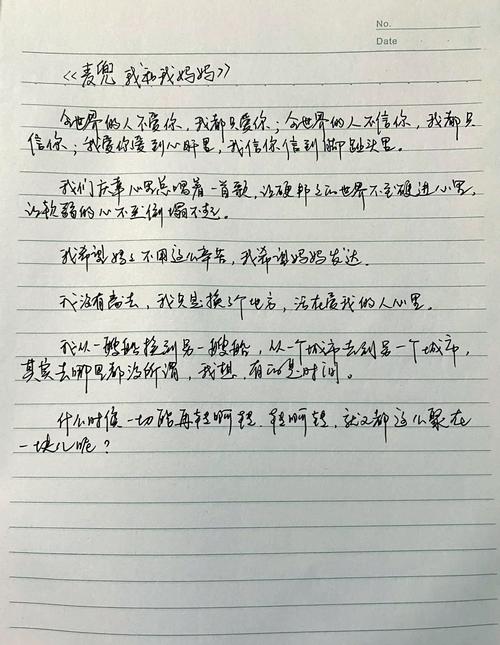 No.
Date
《麦兜 我和我妈妈》
全世界的人不爱你，我都只爱你；全世界的人不信你，我都只
信你；我爱你爱到心肝里，我信你信到脚趾头里。
我们庆幸心里总唱着一首歌，让硬邦邦的世界不至硬进心里，
让软弱的心不至倒塌不起。
我希望妈妈不用这么辛苦，我希望妈妈发达。
我没有离去，我只是换了个地方，活在爱我的人心里。
我从一艘船捡到另一艘船，从一个城市去到另一个城市，
其实去哪里都没所谓，我想，有的是时间。
什么时候一切能再转啊转，转啊转，就又都这么聚在
一块儿呢？